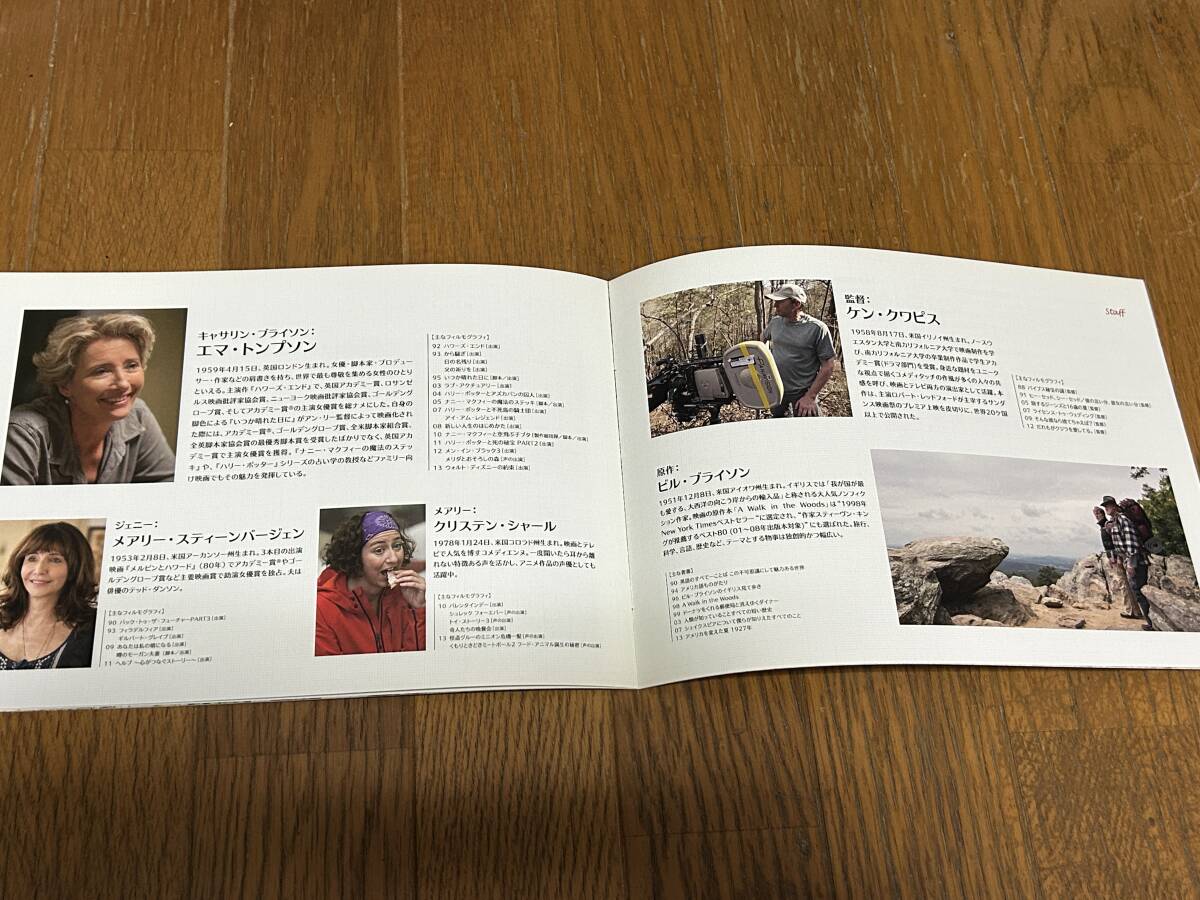 キャサリン・ブライソン：
エマ・トンプソン
1959年4月15日、英国ロンドン生まれ。女優・脚本家・プロデュー
サー・作家などの肩書きを持ち、世界で最も尊敬を集める女性のひとり
といえる。主演作『ハワーズ・エンド』で、英国アカデミー賞、ロサンゼ
ルス映画批評家協会賞、ニューヨーク映画批評家協会賞、ゴールデング
ローブ賞、そしてアカデミー賞®の主演女優賞を総ナメにした。自身の
脚色による『いつか晴れた日に』がアン・リー監督によって映画化され
た際には、アカデミー賞®、ゴールデングローブ賞、全米脚本家組合賞、
全英脚本家協会賞の最優秀脚本賞を受賞したばかりでなく、英国アカ
デミー賞で主演女優賞を獲得。『ナニー・マクフィーの魔法のステッ
キ』や、『ハリー・ポッター』シリーズの占い学の教授などファミリー向
け映画でもその魅力を発揮している。
[主なフィルモグラフィ]
92 ハワーズ・エンド［出演］
93 から騒ぎ［出演］
日の名残り［出演］
父の祈りを［出演］
95 いつか晴れた日に［脚本／出演］
03 ラブ・アクチュアリー［出演］
04 ハリー・ポッターとアズカバンの囚人［出演］
05 ナニー・マクフィーの魔法のステッキ［脚本／出演］
07 ハリー・ポッターと不死鳥の騎士団［出演］
アイ・アム・レジェンド［出演］
08 新しい人生のはじめかた［出演］
10 ナニー・マクフィーと空飛ぶ子ブタ［製作総指揮／脚本／出演］
11 ハリー・ポッターと死の秘宝 PART2［出演］
12 メン・イン・ブラック3［出演］
メリダとおそろしの森［声の出演］
13 ウォルト・ディズニーの約束［出演］
ジェニー：
メアリー・スティーンバージェン
1953年2月8日、米国アーカンソー州生まれ。3本目の出演
映画『メルビンとハワード』（80年）でアカデミー賞®やゴー
ルデングローブ賞など主要映画賞で助演女優賞を独占。夫は
俳優のテッド・ダンソン。
[主なフィルモグラフィ]
90 バック・トゥ・ザ・フューチャーPART3［出演］
93 フィラデルフィア［出演］
ギルバート・グレイプ［出演］
09 あなたは私の婿になる［出演］
噂のモーガン夫妻［脚本／出演］
11 ヘルプ 〜心がつなぐストーリー〜［出演］
メアリー：
クリステン・シャール
1978年1月24日、米国コロラド州生まれ。映画とテレ
ビで人気を博すコメディエンヌ。一度聞いたら耳から離
れない特徴ある声を活かし、アニメ作品の声優としても
活躍中。
[主なフィルモグラフィ]
10 バレンタインデー［出演］
シュレック フォーエバー［声の出演］
トイ・ストーリー3［声の出演］
奇人たちの晩餐会［出演］
13 怪盗グルーのミニオン危機一髪［声の出演］
くもりときどきミートボール2 フード・アニマル誕生の秘密［声の出演］
Staff
監督：
ケン・クワピス
1958年8月17日、米国イリノイ州生まれ。ノースウ
エスタン大学と南カリフォルニア大学で映画制作を学
び、南カリフォルニア大学の卒業制作作品で学生アカ
デミー賞（ドラマ部門）を受賞。身近な題材をユニーク
な視点で描くコメディタッチの作風が多くの人々の共
感を呼び、映画とテレビ両方の演出家として活躍。本
作は、主演ロバート・レッドフォードが主宰するサンダ
ンス映画祭のプレミア上映を皮切りに、世界20ケ国
以上で公開された。
[主なフィルモグラフィ]
88 バイブス秘宝の謎［監督］
91 ヒー・セッド、シー・セッド／彼の言い分、彼女の言い分［監督］
05 旅するジーンズと16歳の夏［監督］
07 ライセンス・トゥ・ウェディング［監督］
09 そんな彼なら捨てちゃえば？［監督］
12 だれもがクジラを愛してる。［監督］
原作：
ビル・ブライソン
1951年12月8日、米国アイオワ州生まれ。イギリスでは「我が国が最
も愛する、大西洋の向こう岸からの輸入品」と称される大人気ノンフィク
ション作家。映画の原作本「A Walk in the Woods」は"1998年
New York Timesベストセラー"に選定され、"作家スティーヴン・キン
グが推薦するベスト80（01〜08年出版本対象）"にも選ばれた。旅行、
科学、言語、歴史など、テーマとする物事は独創的かつ幅広い。
[主な著書]
90 英語のすべてーことば この不可思議にして魅力ある世界
94 アメリカ語ものがたり
96 ビル・ブライソンのイギリス見て歩き
98 A Walk in the Woods
99 ドーナツをくれる郵便局と消えゆくダイナー
03 人類が知っていることすべての短い歴史
07 シェイクスピアについて僕らが知りえたすべてのこと
13 アメリカを変えた夏 1927年